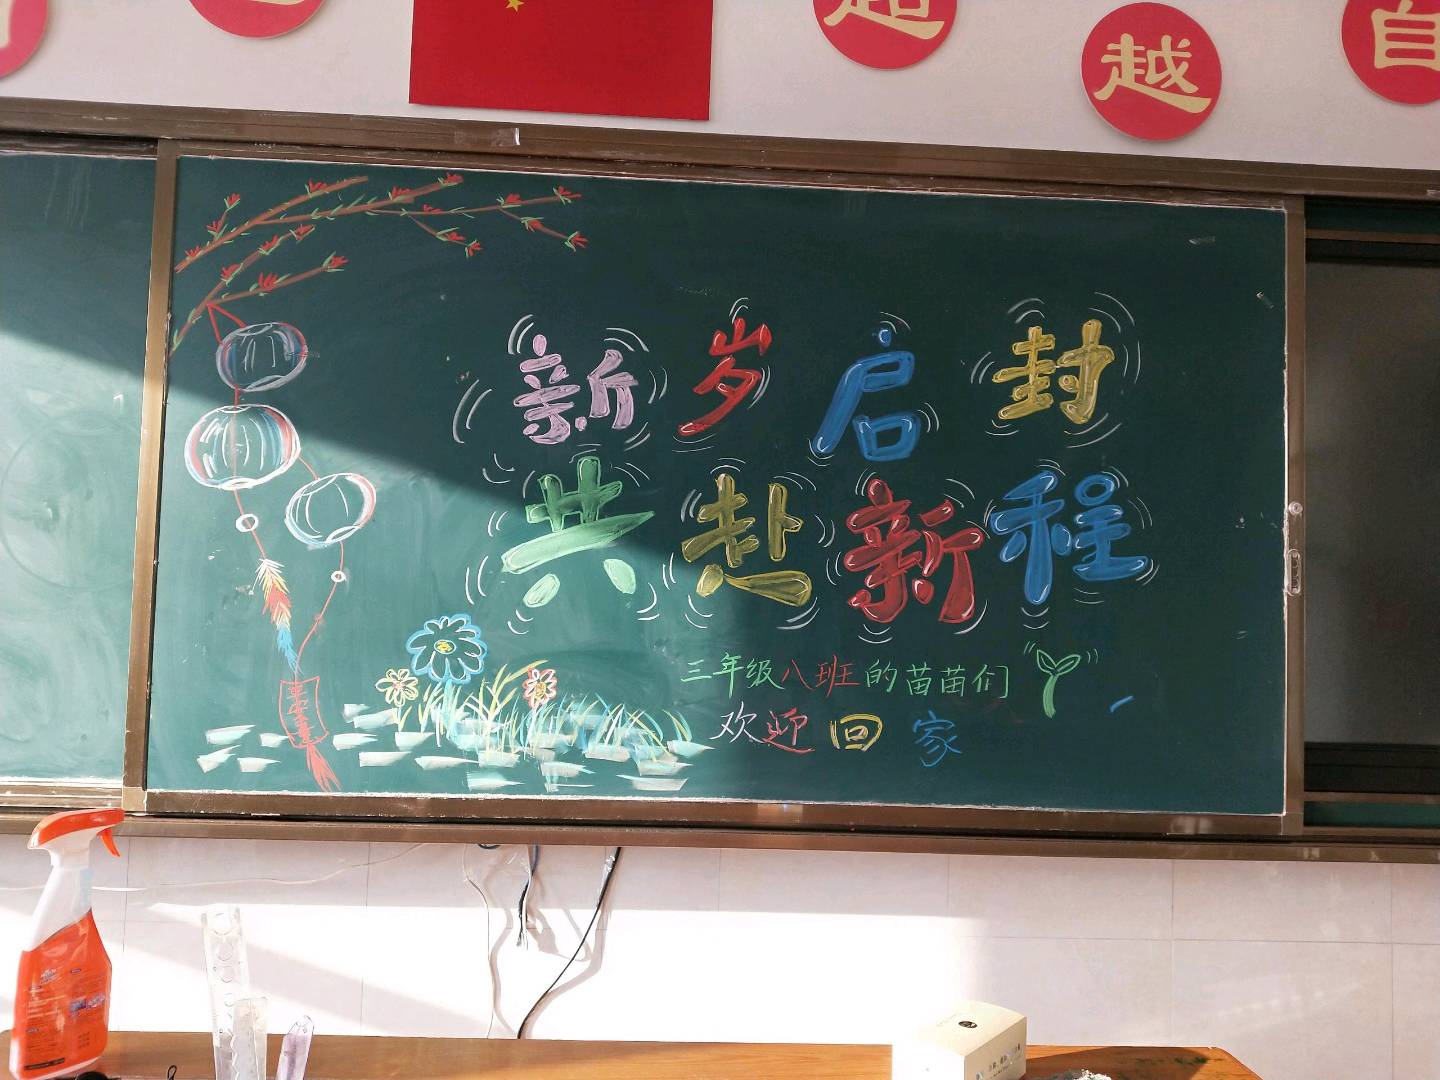 超
越
自
新岁启封
共赴新程
三年级八班的苗苗们
欢迎回家